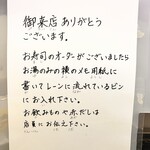 御来店ありがとう
ございます。
お寿司のオーダーがございましたら
お湯のみの横のメモ用紙に
書いてレーンに流れているビン
にお入れ下さい。
お飲みものや赤だしは
店員にお伝え下さい。